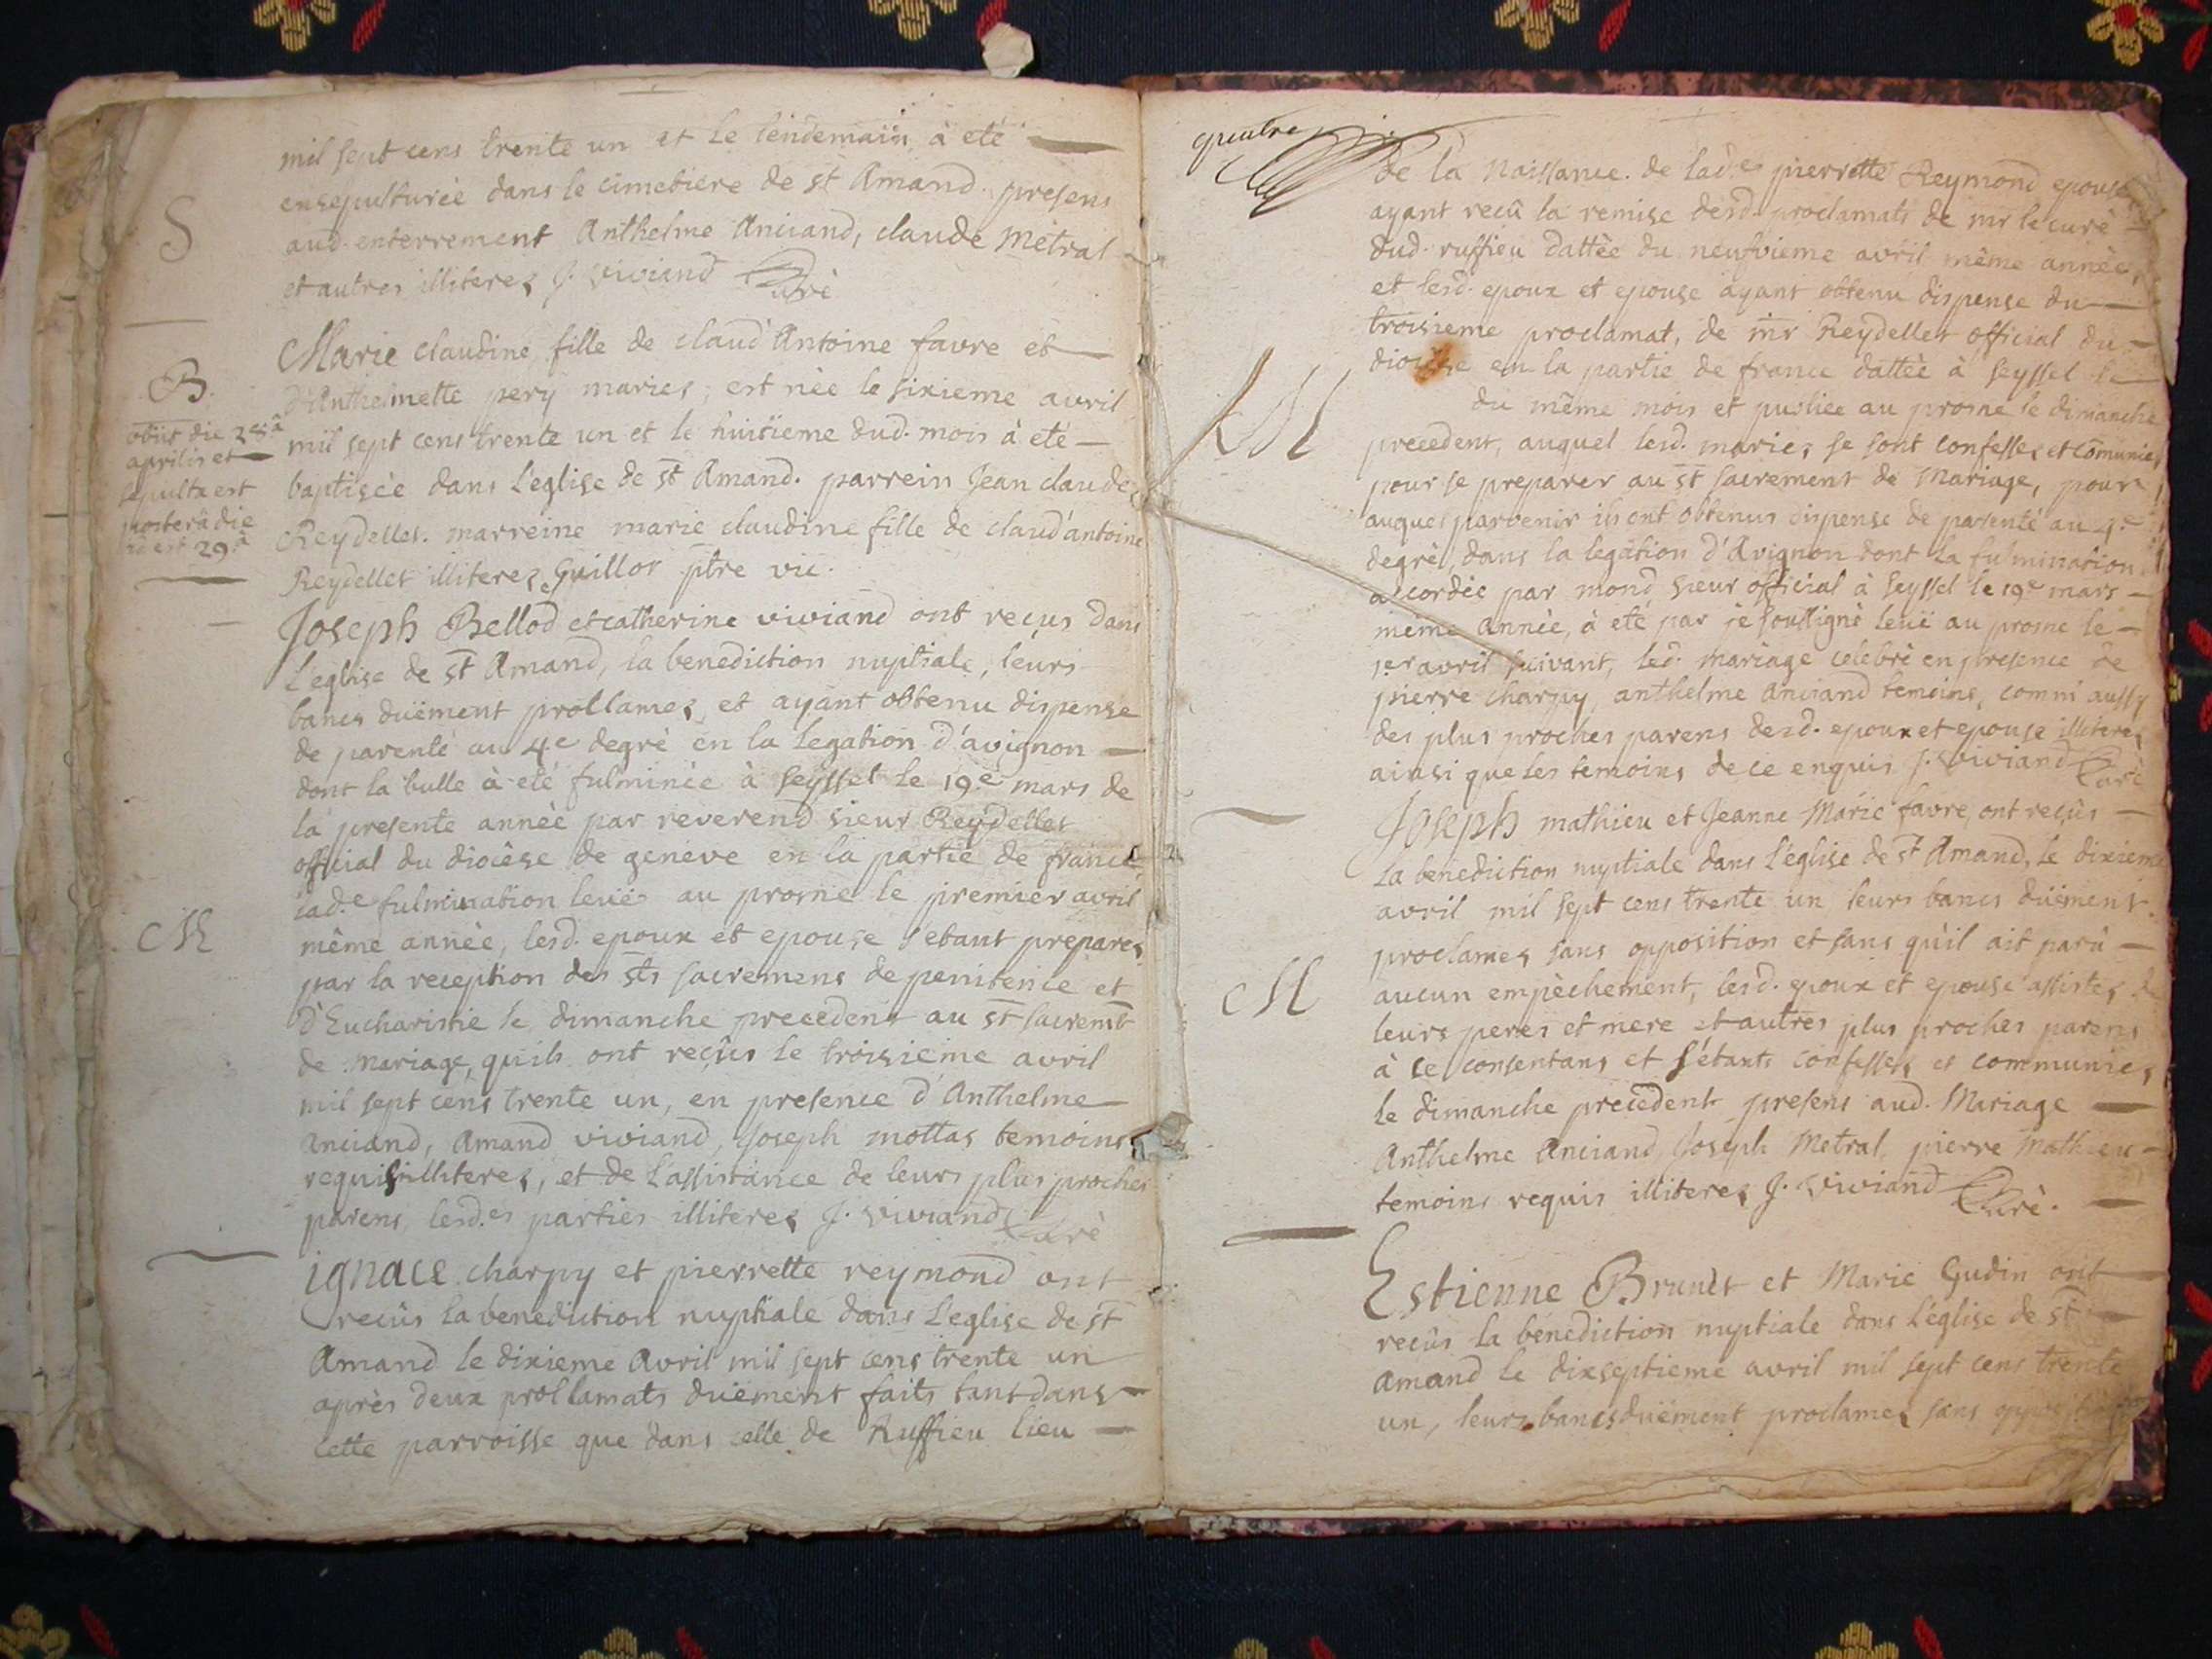 mil sept cens trente un et le lendemain, à eté
ensepulturèe dans le cimetiere de st Amand. presens
S
aud. enterrement Anthelme Anciand, claude Metral
et autres illiteres J. Viviand Curè
Marie claudine fille de claud'Antoine favre et
B.
D'Anthelmette pery maries, est nèe le sixieme avril
obiit die 28â
aprilis et
sepulta est
posterâ die
29â
mil sept cens trente un et le huitieme dud. mois à eté
baptisèe dans L'eglise de st Amand. parrein Jean claude
Reydellet. marreine marie claudine fille de claud'antoine
Reydellet illiteres Guillot ptre vic.
Joseph Bellod et catherine viviand ont recus dans
L'eglise de st Amand, la benediction nuptiale, leurs
bancs duëment proclames, et ayant obtenu dispense
de parenté au 4e degrè en la legation d'avignon
dont la bulle à eté fulminèe à Seyssel le 19e mars de
la presente annèe par reverend sieur Reydellet
official du diocèse de geneve en la partie de france
lad.e fulmination leüe au prosne le premier avril
M
même annèe, lesd. epoux et epouse s'etant prepares
par la reception des sts sacremens de penitence et
d'Eucharistie le dimanche precedent au st sacremt
de Mariage, quils ont reçûs le troisieme avril
mil sept cens trente un, en presence d'Anthelme
anciand, Amand viviand, Joseph mottas temoins
requis illiteres, et de L'assistance de leurs plus proches
parens, lesd.es parties illiteres J. viviand Curè
ignace charpy et pierrette reymond ont
recûs la benediction nuptiale dans L'eglise de st
Amand le dixieme Avril mil sept cens trente un
après deux proclamats duëment faits tant dans
cette parroisse que dans celle de Ruffieu lieu
quatre
de la Naissance de lad.e pierrette Reymond epouse
ayant reçû la remise desd. proclamats de mr le curè
dud. ruffieu dattèe du neufvieme avril même annèe,
et lesd. epoux et epouse ayant obtenu dispense du
troisieme proclamat, de mr Reydellet official du
diocese en la partie de france dattèe à Seyssel le
du même mois et publiee au prosne le dimanche
M
precedent, auquel lesd. maries se sont confesses et comunies
pour se preparer au st sacrement de Mariage, pour
auquel parvenir ils ont obtenus dispense de parenté au 4e
degrè, dans la legation d'Avignon dont la fulmination
accordèe par mond. sieur official à Seyssel le 19e mars
même annèe, à eté par je soussignè leüe au prosne le
1er avril suivant, led. mariage celebrè en presence de
pierre charpy, anthelme anciand temoins, comm'aussy
des plus proches parens desd. epoux et epouse illiteres
ainsi que les temoins de ce enquis J. Viviand Curè
Joseph mathieu et Jeanne Marie favre, ont reçûs
La benediction nuptiale dans L'eglise de st Amand, le dixieme
avril mil sept cens trente un leurs bancs düement
proclames sans opposition et sans qu'il ait parû
M
aucun empèchement, lesd. epoux et epouse assistes de
leurs peres et mere et autres plus proches parens
à ce consentans et s'étants confesses et communies
le dimanche precedent presens aud. Mariage
Anthelme Anciand, Joseph Metral, pierre Mathieu
temoins requis illiteres J. Viviand Curè.
Estienne Brunet et Marie Gudin ont
recûs la benediction nuptiale dans L'église de st
amand le dixseptieme avril mil sept cens trente
un, leurs bancs duëment proclames sans opposition